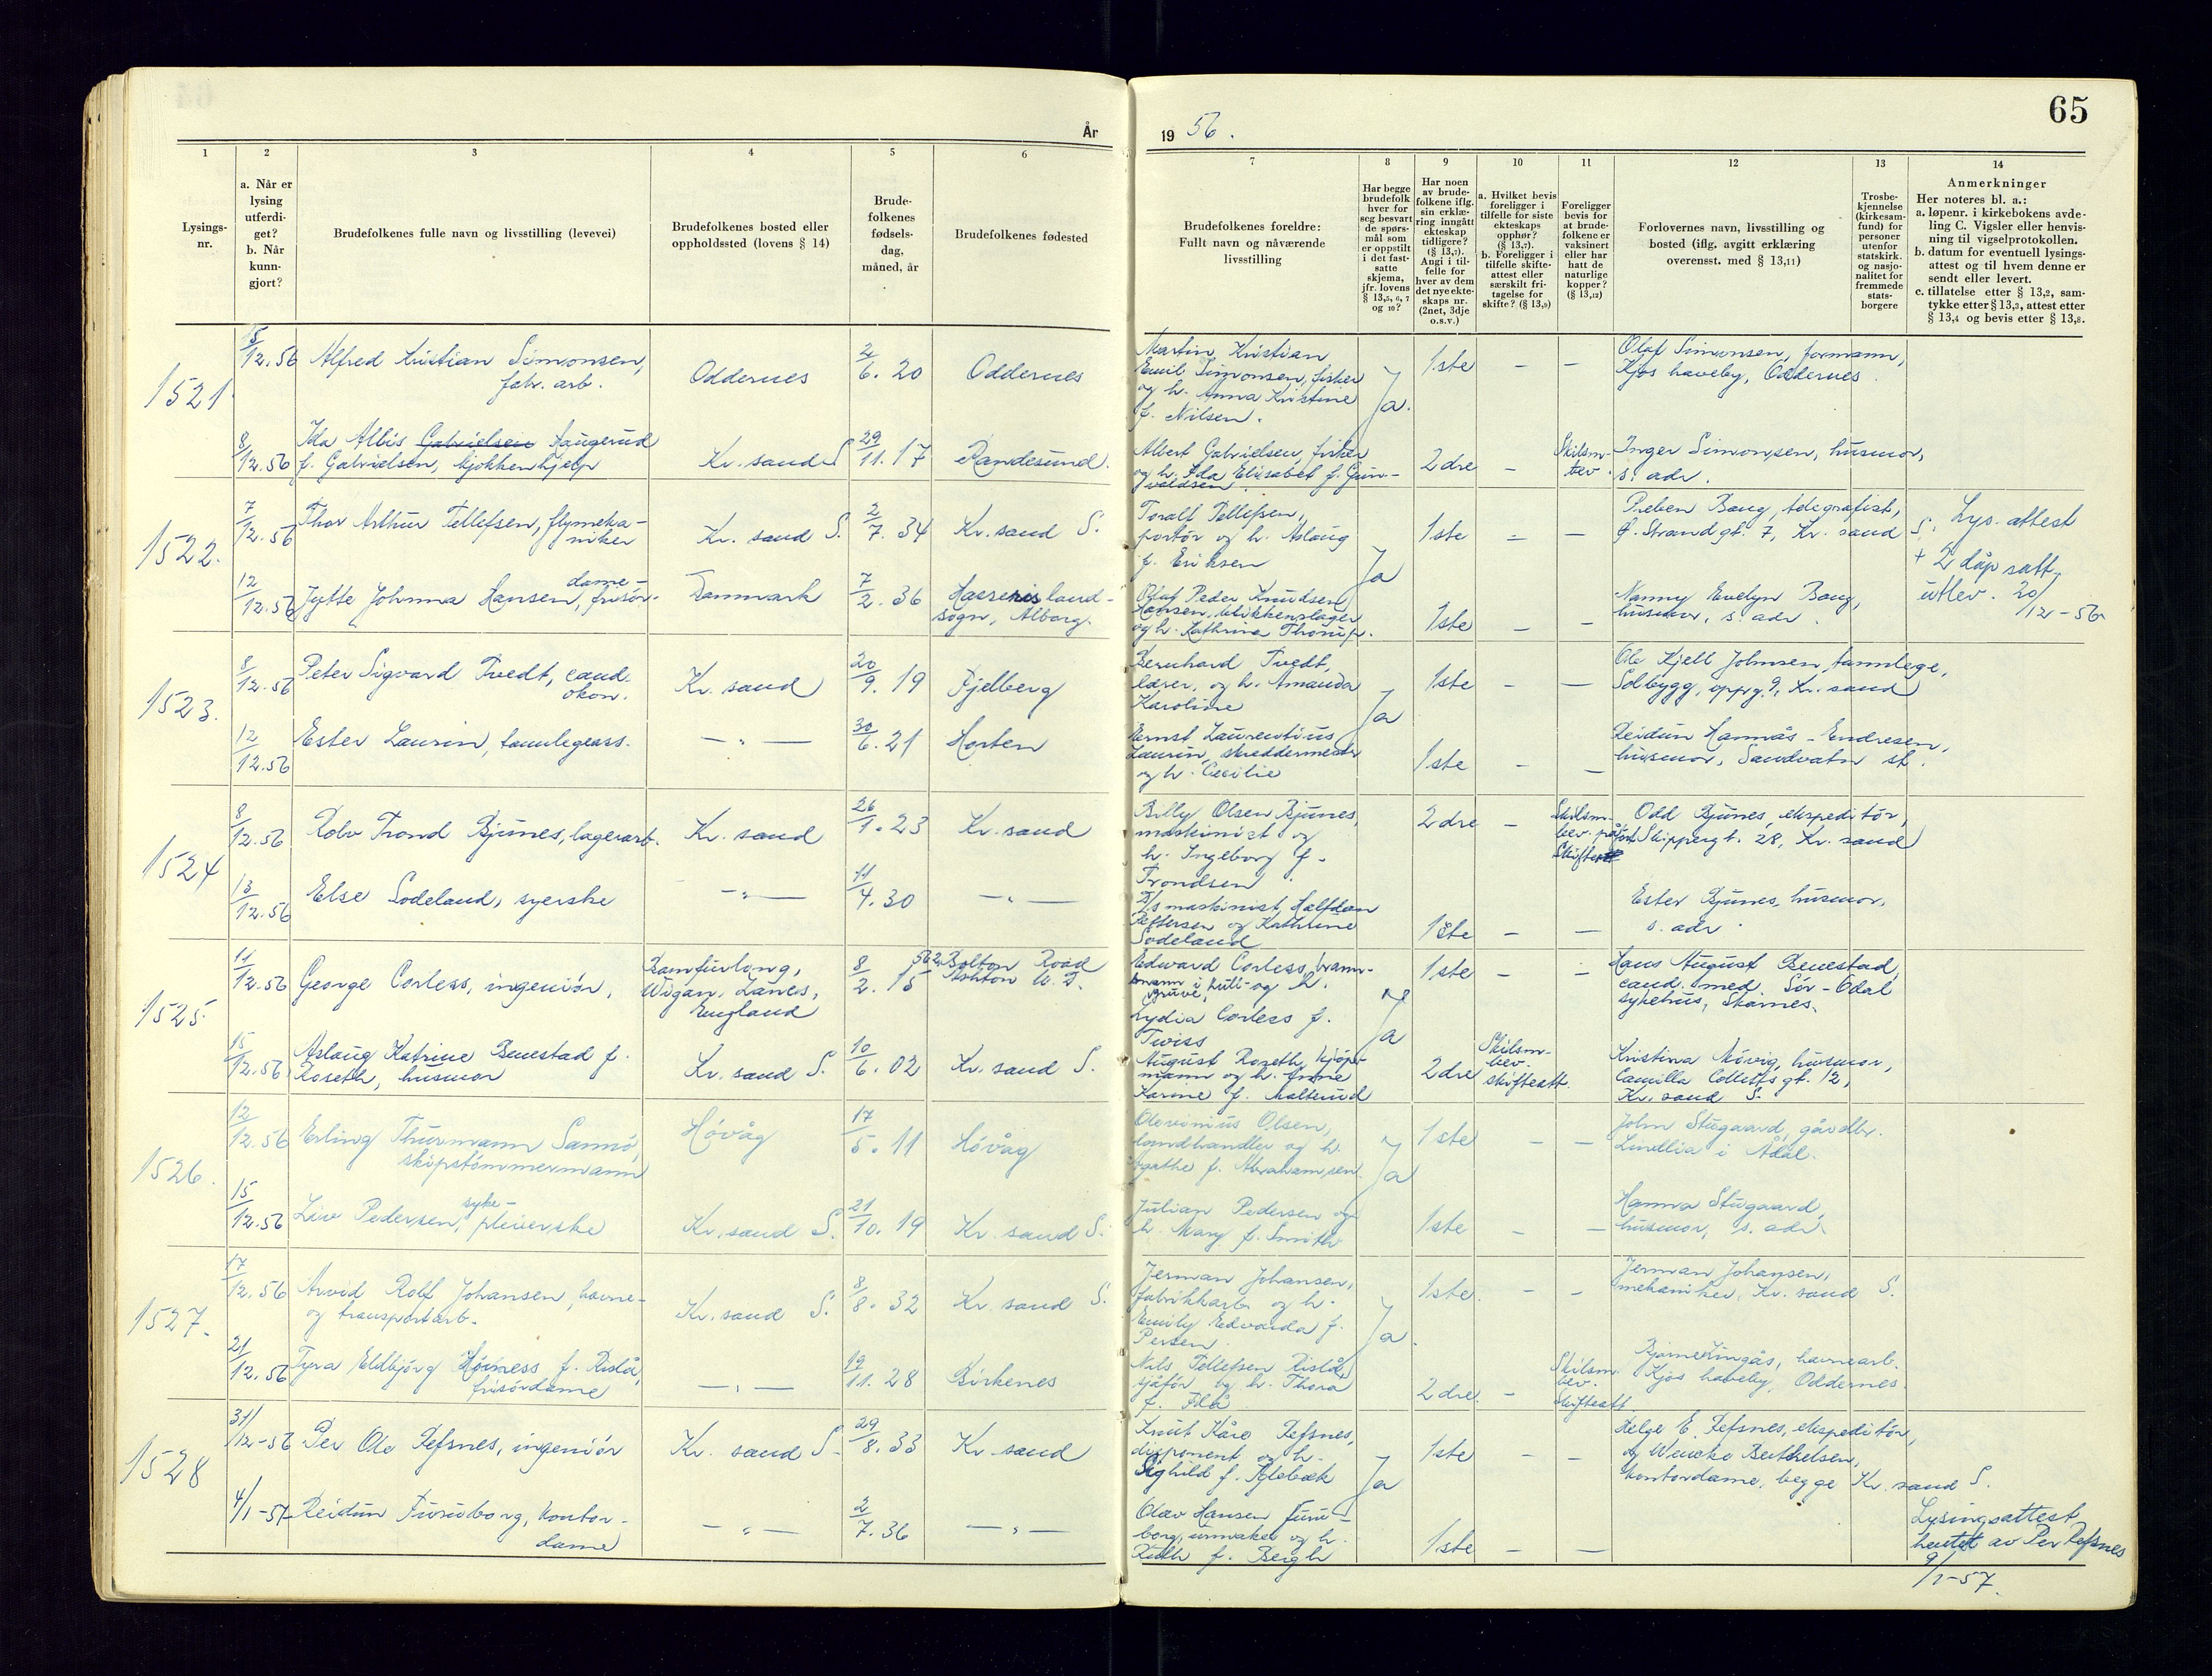 65
År
19 56.
1
2
3
4
5
6
7
8
9
10
11
12
13
14
Lysings-
nr.
a. Når er
lysing
utferdi-
get?
b. Når
kunn-
gjort?
Brudefolkenes fulle navn og livsstilling (levevei)
Brudefolkenes bosted eller
oppholdssted (lovens § 14)
Brude-
folkenes
fødsels-
dag,
måned, år
Brudefolkenes fødested
Brudefolkenes foreldre:
Fullt navn og nåværende
livsstilling
Har begge
brudefolk
hver for
seg besvart
de spørs-
mål som
er oppstilt
i det fast-
satte
skjema,
jfr. lovens
§ 13,5, 6, 7
og 10?
Har noen
av brude-
folkene iflg.
sin erklæ-
ring inngått
ekteskap
tidligere?
(§ 13,7).
Angi i til-
felle for
hver av dem
det nye ekte-
skaps nr.
(2net, 3dje
o.s.v.)
a. Hvilket bevis
foreligger i
tilfelle for siste
ekteskaps
opphør?
(§ 13,7).
b. Foreligger i
tilfelle skifte-
attest eller
særskilt fri-
tagelse for
skifte? (§ 13,9)
Foreligger
bevis for
at brude-
folkene er
vaksinert
eller har
hatt de
naturlige
kopper?
(§ 13,12)
Forlovernes navn, livsstilling og
bosted (iflg. avgitt erklæring
overensst. med § 13,11)
Trosbe-
kjennelse
(kirkesam-
fund) for
personer
utenfor
statskirk.
og nasjo-
nalitet for
fremmede
stats-
borgere
Anmerkninger
Her noteres bl. a.:
a. løpenr. i kirkebokens avde-
ling C. Vigsler eller henvis-
ning til vigselprotokollen.
b. datum for eventuell lysings-
attest og til hvem denne er
sendt eller levert.
c. tillatelse etter § 13,2, sam-
tykke etter § 13,3, attest etter
§ 13,4 og bevis etter § 13,8.
1521.
5/12.56
Alfred Kristian Simonsen,
fabr. arb.
Oddernes
2/6. 20
Oddernes
Martin Kristian
Emil Simonsen, fisker
og h. Anna Kristine
f. Nilsen.
Ja.
1ste
-
-
Olaf Simonsen, formann,
Kjos haveby, Oddernes.
8/12.56
Ida Albis Gabrielsen Haugerud
f. Gabrielsen, kjøkkenhjelp
Kr. sand S
29/11. 17
Randesund.
Albert Gabrielsen, fisker
og h. Ida Elisabet f. Gun-
valdsen.
2dre
-
Skilsm-
bev.
Inger Simonsen, husmor,
s. adr.
1522.
7/12.56
Thor Arthur Tellefsen, flymeka-
niker
Kr. sand S.
2/7. 34
Kr. sand S.
Toralf Tellefsen,
portør og h. Aslaug
f. Eriksen
Ja
1ste
-
-
Preben Bang, telegrafist,
Ø. Strandgt. 7, Kr. sand S.
Lys. attest
+ 2 dåpsatt.
utlev. 20/12-56
12/12.56
Jytte Johnna Hansen, dame-
frisør.
Danmark
7/2. 36
Hasseris land-
sogn, Ålborg.
Oluf Peder Knudsen
Hansen, blikkenslager
og h. Kathrina Thorup.
1ste
-
-
Nanny Evelyn Bang,
husmor, s. adr.
1523.
8/12.56
Peter Sigvard Tvedt, cand.
økon.
Kr. sand
20/9. 19
Fjelberg
Bernhard Tvedt,
lærer, og h. Amanda
Karoline
Ja
1ste
-
-
Ole Kjell Johnsen, tannlege,
Solbygg, oppg. 9, Kr. sand
12/12.56
Ester Laurin, tannlegeass.
- " -
30/6. 21
Horten
Ernst Laurentius
Laurin, skreddermester
og h. Cecilie
1ste
-
-
Reidun Hamnås-Endresen,
husmor, Sandvatn st.
1524
8/12.56
Rolv Trond Bjunes, lagerarb.
Kr. sand
26/1. 23
Kr. sand
Billy Olsen Bjunes,
maskinist og
h. Ingeborg f.
Trondsen.
2dre
-
Skilsm-
bev.
Odd Bjunes, ekspeditør,
Skippergt. 28, Kr. sand
13/12.56
Else Sodeland, syerske
- " -
11/4. 30
- " -
D/s maskinist Halfdan
Pettersen og Kathrine
Sodeland
1ste
-
-
Ester Bjunes, husmor,
s. adr.
1525.
11/12.56
George Corless, ingeniør,
Bamfurlong,
Wigan, Lancs,
England
8/2. 15
562 Bolton Road
Ashton
Edward Corless,
mann i kull-
gruve, og h.
Lydia Corless f.
Twiss
Ja
1ste
-
-
Hans August Benestad,
cand. med. Sør-Odal
sykehus, Skarnes.
15/12.56
Aslaug Katrine Benestad f.
Roseth, husmor
Kr. sand S.
10/6. 02
Kr. sand S.
August Roseth, kjøp-
mann og h. Anne
Karine f. Malterud
2dre
Skilsm-
bev.
skifteatt.
Kristina Møvig, husmor,
Camilla Colletts gt. 12,
Kr. sand S.
1526.
12/12.56
Erling Thurmann Sannø,
skipstømmermann
Høvåg
17/5. 11
Høvåg
Olevinius Olsen,
landhandler og h.
Agathe f. Abrahamsen.
Ja
1ste
-
-
John Stugaard, gårdbr.
Lindlia i Ådal.
15/12.56
Liv Pedersen, syke-
pleierske
Kr. sand S.
21/10. 19
Kr. sand S.
Julian Pedersen og
h. Mary f. Smith
1ste
-
-
Hanna Stugaard,
husmor, s. adr.
1527.
17/12.56
Arvid Rolf Johansen, havne-
og transportarb.
Kr. sand S.
8/8. 32
Kr. sand S.
Jerman Johansen,
fabrikkarb. og h.
Emily Edvarda f.
Persen.
Ja.
1ste.
-
-
Jerman Johansen,
mekaniker, Kr. sand S.
21/12.56
Tyra Eldbjørg Høiness f. Rislå,
frisørdame
- " -
19/11. 28
Birkenes
Nils Tellefsen Rislå,
sjåfør og h. Thora
f. Flå
2dre.
-
Skilsm.
bev.
Skifteatt.
Bjarne Lingås, havnearb.
Kjos haveby, Oddernes.
1528
31/12-56
Per Ole Refsnes, ingeniør
Kr. sand S.
29/8. 33
Kr. sand
Knut Kåre Refsnes,
disponent og h.
Sighild f. Klebæk
Ja
1ste
-
-
Helge E. Refsnes, ekspeditør,
og Wencke Berthelsen,
kontordame, begge Kr. sand S.
4/1-57
Reidun Furuborg, kontor-
dame
- " -
2/7. 36
- " -
Olav Hansen Furu-
borg, urmaker og h.
Ruth f. Bergh
1ste
-
-
Lysingsattest
hentet av Per Refsnes
9/1-57.